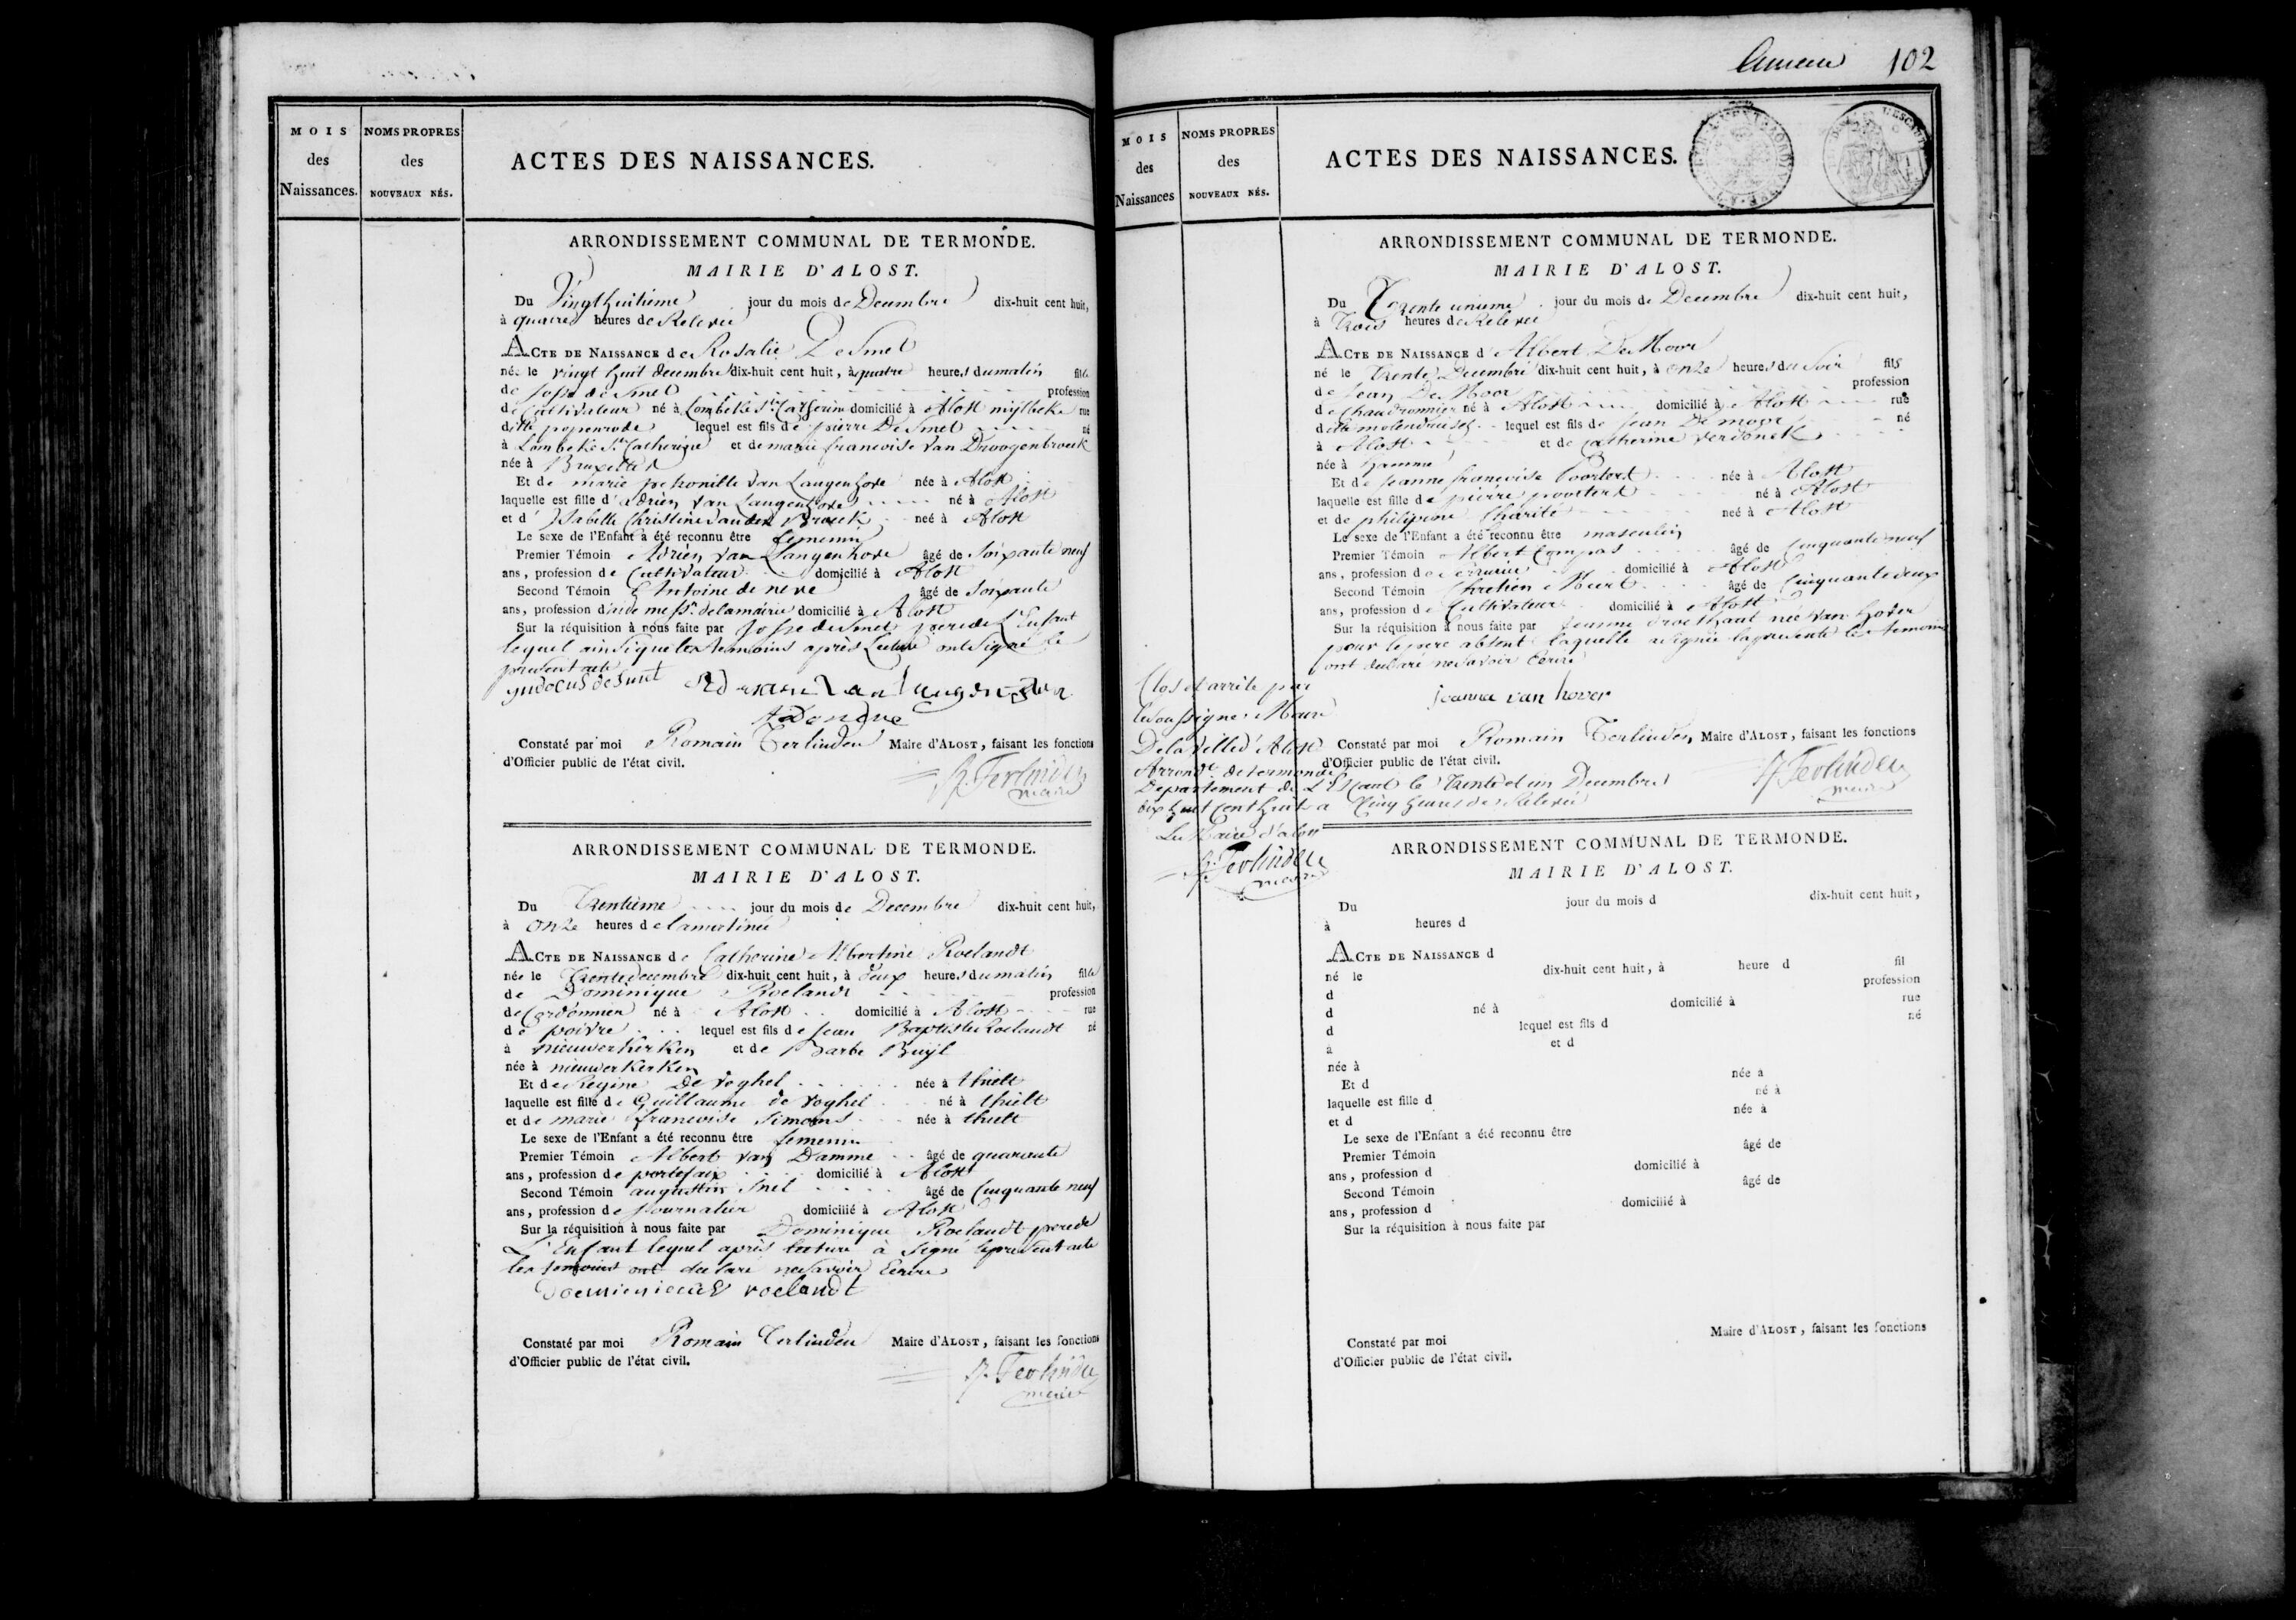 MOIS
des
Naissances.
NOMS PROPRES
des
NOUVEAUX NÉS.
ACTES DES NAISSANCES.
ARRONDISSEMENT COMMUNAL DE TERMONDE.
MAIRIE D'ALOST.
Du Vingthuitieme jour du mois de Decembre dix-huit cent huit,
à quatre heures de Relevée
ACTE DE NAISSANCE de Rosalie De Smet
née le vingt huit decembre dix-huit cent huit, à quatre heures du matin fille
de Josse de Smet profession
de Cultivateur né à Lombeke Ste Catherine domicilié à Alost mijlbeke rue
ditte popenrode lequel est fils de pierre De Smet né
à Lombeke Ste Catherine et de marie francoise Van Droogenbroeck
née à Bruxelles
Et de marie petronille Van Langenhove née à Alost
laquelle est fille d'adrien van Langenhove né à Alost
et d'Isabelle Christine Vanden Broeck neé à Alost
Le sexe de l'Enfant à été reconnu être femenin
Premier Témoin Adrien Van Langenhove âgé de Soixante neuf
ans, profession de Cultivateur domicilié à Alost
Second Témoin Antoine de neve âgé de Soixante
ans, profession d'aide messr. de la mairie domicilié à Alost
Sur la réquisition à nous faite par Josse de Smet pere de l'Enfant
lequel ainsi que les temoins après Lecture ont Signé le
present acte
judocus de smet Adriaen Van Langenhoven
A De neve
Constaté par moi Romain Terlinden Maire d'ALOST, faisant les fonctions
d'Officier public de l'état civil.
R. Terlinden
maire
ARRONDISSEMENT COMMUNAL DE TERMONDE.
MAIRIE D'ALOST.
Du Trentieme jour du mois de Decembre dix-huit cent huit,
à onze heures de la matinée
ACTE DE NAISSANCE de Catherine Albertine Roelandt
née le Trente decembre dix-huit cent huit, à deux heures du matin fille
de Dominique Roelandt profession
de Cordonnier né à Alost domicilié à Alost rue
de poivre lequel est fils de Jean Baptiste Roelandt né
à nieuwerkerken et de Barbe Buijl
née à nieuwerkerken
Et de Regine De Voghel née à thielt
laquelle est fille de Guillaume de Voghel né à thielt
et de marie francoise Simoens née à thielt
Le sexe de l'Enfant a été reconnu être femenin
Premier Témoin Albert van Damme âgé de quarante
ans, profession de portefaix domicilié à Alost
Second Témoin augustin Snel âgé de Cinquante neuf
ans, profession de Journalier domicilié à Alost
Sur la réquisition à nous faite par Dominique Roelandt pere de
L'Enfant lequel après lecture à Signé le present acte
les temoins ont declaré ne savoir Ecrire
roelandt
Constaté par moi Romain Terlinden Maire d'ALOST, faisant les fonctions
d'Officier public de l'état civil.
R. Terlinden
maire
102
MOIS
des
Naissances
NOMS PROPRES
des
NOUVEAUX NÉS.
ACTES DES NAISSANCES.
ARRONDISSEMENT COMMUNAL DE TERMONDE.
MAIRIE D'ALOST.
Du Trente unieme jour du mois de Decembre dix-huit cent huit,
à Trois heures de Relevée
ACTE DE NAISSANCE d'Albert De Moor
né le Trente Decembre dix-huit cent huit, à onze heures du Soir fils
de Jean De Moor profession
de Chaudronnier né à Alost domicilié à Alost rue
ditte molendriesch lequel est fils de Jean De moor né
à Alost et de Catherine Verdonck
née à hamme
Et de Jeanne francoise Poortert née à Alost
laquelle est fille de pierre poortert né à Alost
et de philipine Charite neé à Alost
Le sexe de l'Enfant a été reconnu être masculin
Premier Témoin Albert Compas âgé de Cinquante neuf
ans, profession de Serrurier domicilié à Alost
Second Témoin Chretien Meert âgé de Cinquante deux
ans, profession de Cultivateur domicilié à Alost
Sur la réquisition à nous faite par Jeanne née van hover
pour le pere absent laquelle a Signée la presente les temoins
ont declaré ne Savoir Ecrire
joanna van hover
Constaté par moi Romain Terlinden Maire d'ALOST, faisant les fonctions
d'Officier public de l'état civil.
R. Terlinden
maire
Clos et arrêté par
le Soussigné Maire
De la Ville d'Alost
Arrondt. de termonde
Departement de L'Escaut le Trente et un Decembre
dix huit Cent huit a Cinq heures de Relevée
Le Maire d'alost
R. Terlinden
maire
ARRONDISSEMENT COMMUNAL DE TERMONDE.
MAIRIE D'ALOST.
Du jour du mois d dix-huit cent huit,
à heures d
ACTE DE NAISSANCE d
né le dix-huit cent huit, à heure d fil
d profession
d né à domicilié à rue
d lequel est fils d né
à et d
née à
Et d née à
laquelle est fille d né à
et d née à
Le sexe de l'Enfant a été reconnu être
Premier Témoin âgé de
ans, profession d domicilié à
Second Témoin âgé de
ans, profession d domicilié à
Sur la réquisition à nous faite par
Constaté par moi Maire d'ALOST, faisant les fonctions
d'Officier public de l'état civil.